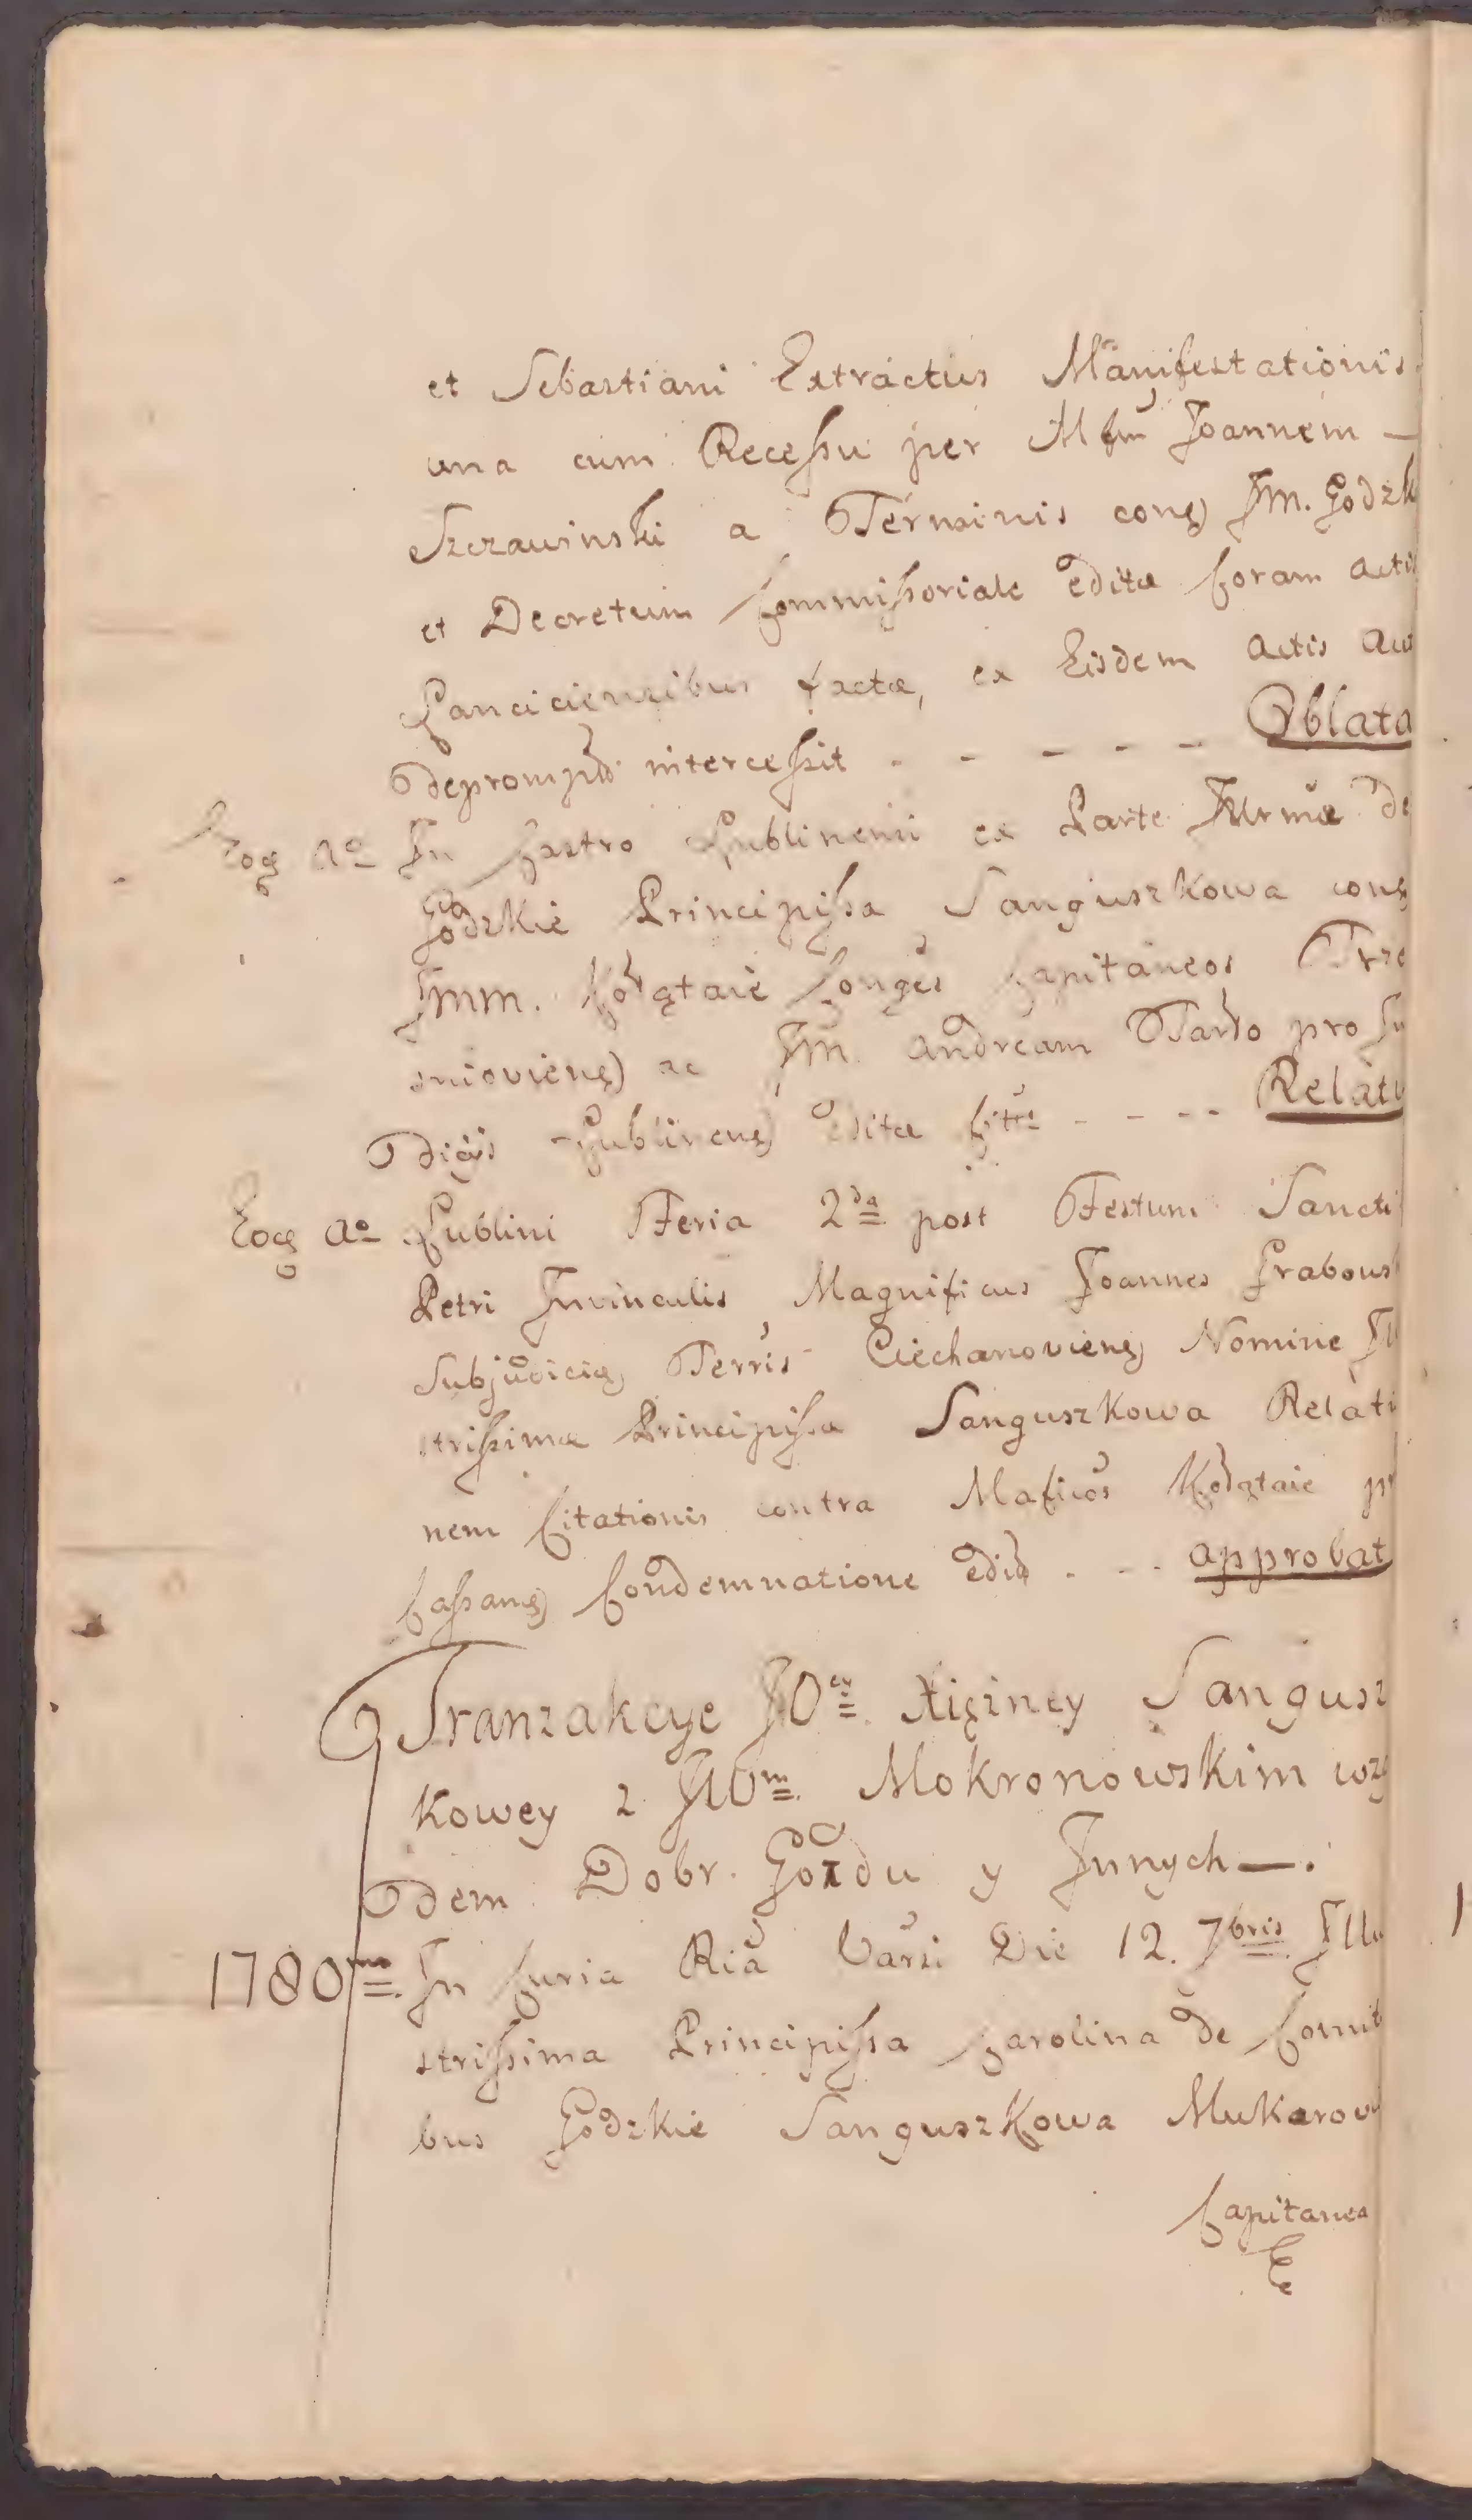 et Sebastiani Extractus Manifestationis
una cum Recessu per Mfm Joannem —
Szczawinski a Terminis cong) Jm. Godzk
et Decretum Commissoriale edita Coram Actis
Lanciciensibus facta, ex Eisdem Actis
Deprompt intercessit - - - - - Oblata
Eog Ao In Castro Lublinensi ex Parte Jllrmæ de
Godzkie Principissa Sanguszkowa cong
Jmm. Kołątaie Conges Capitaneos Trze
sniovieng) ac Jm. Andream Tarło pro Ju
dicijs Lublineng) edita - - - - Relat
Eog Ao Lublini Feria 2da post Festum Sancti
Petri Invinculis, Magnificus Joannes Grabous
Subjudicig) Terris Ciechanovieng) Nomine Jll
strissimæ Principissa Sanguszkowa Relati
nem Citationis contra Maficos Kołątaie pr
Cassang) Condemnatione edit - - - approbat
Tranzakcye JOey Xięzney Sangusz
Kowey z JWm Mokronowskim wzg
dem Dobr. Gozdu y Jnnych —.
1780mo In Curia Ria Varsi Die 12. 7bris Jllu
strissima Principissa Carolina de Comit
bus Godzkie Sanguszkowa Mukarov
Capitanea